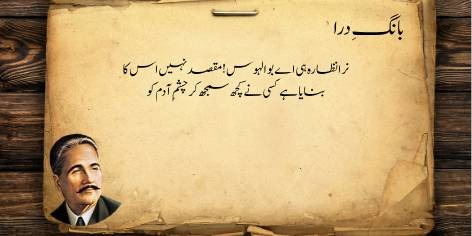 بانگِ درا
نرا نظارہ ہی اے بوالہوس! مقصد نہیں اس کا
بنایا ہے کسی نے کچھ سمجھ کر چشمِ آدم کو